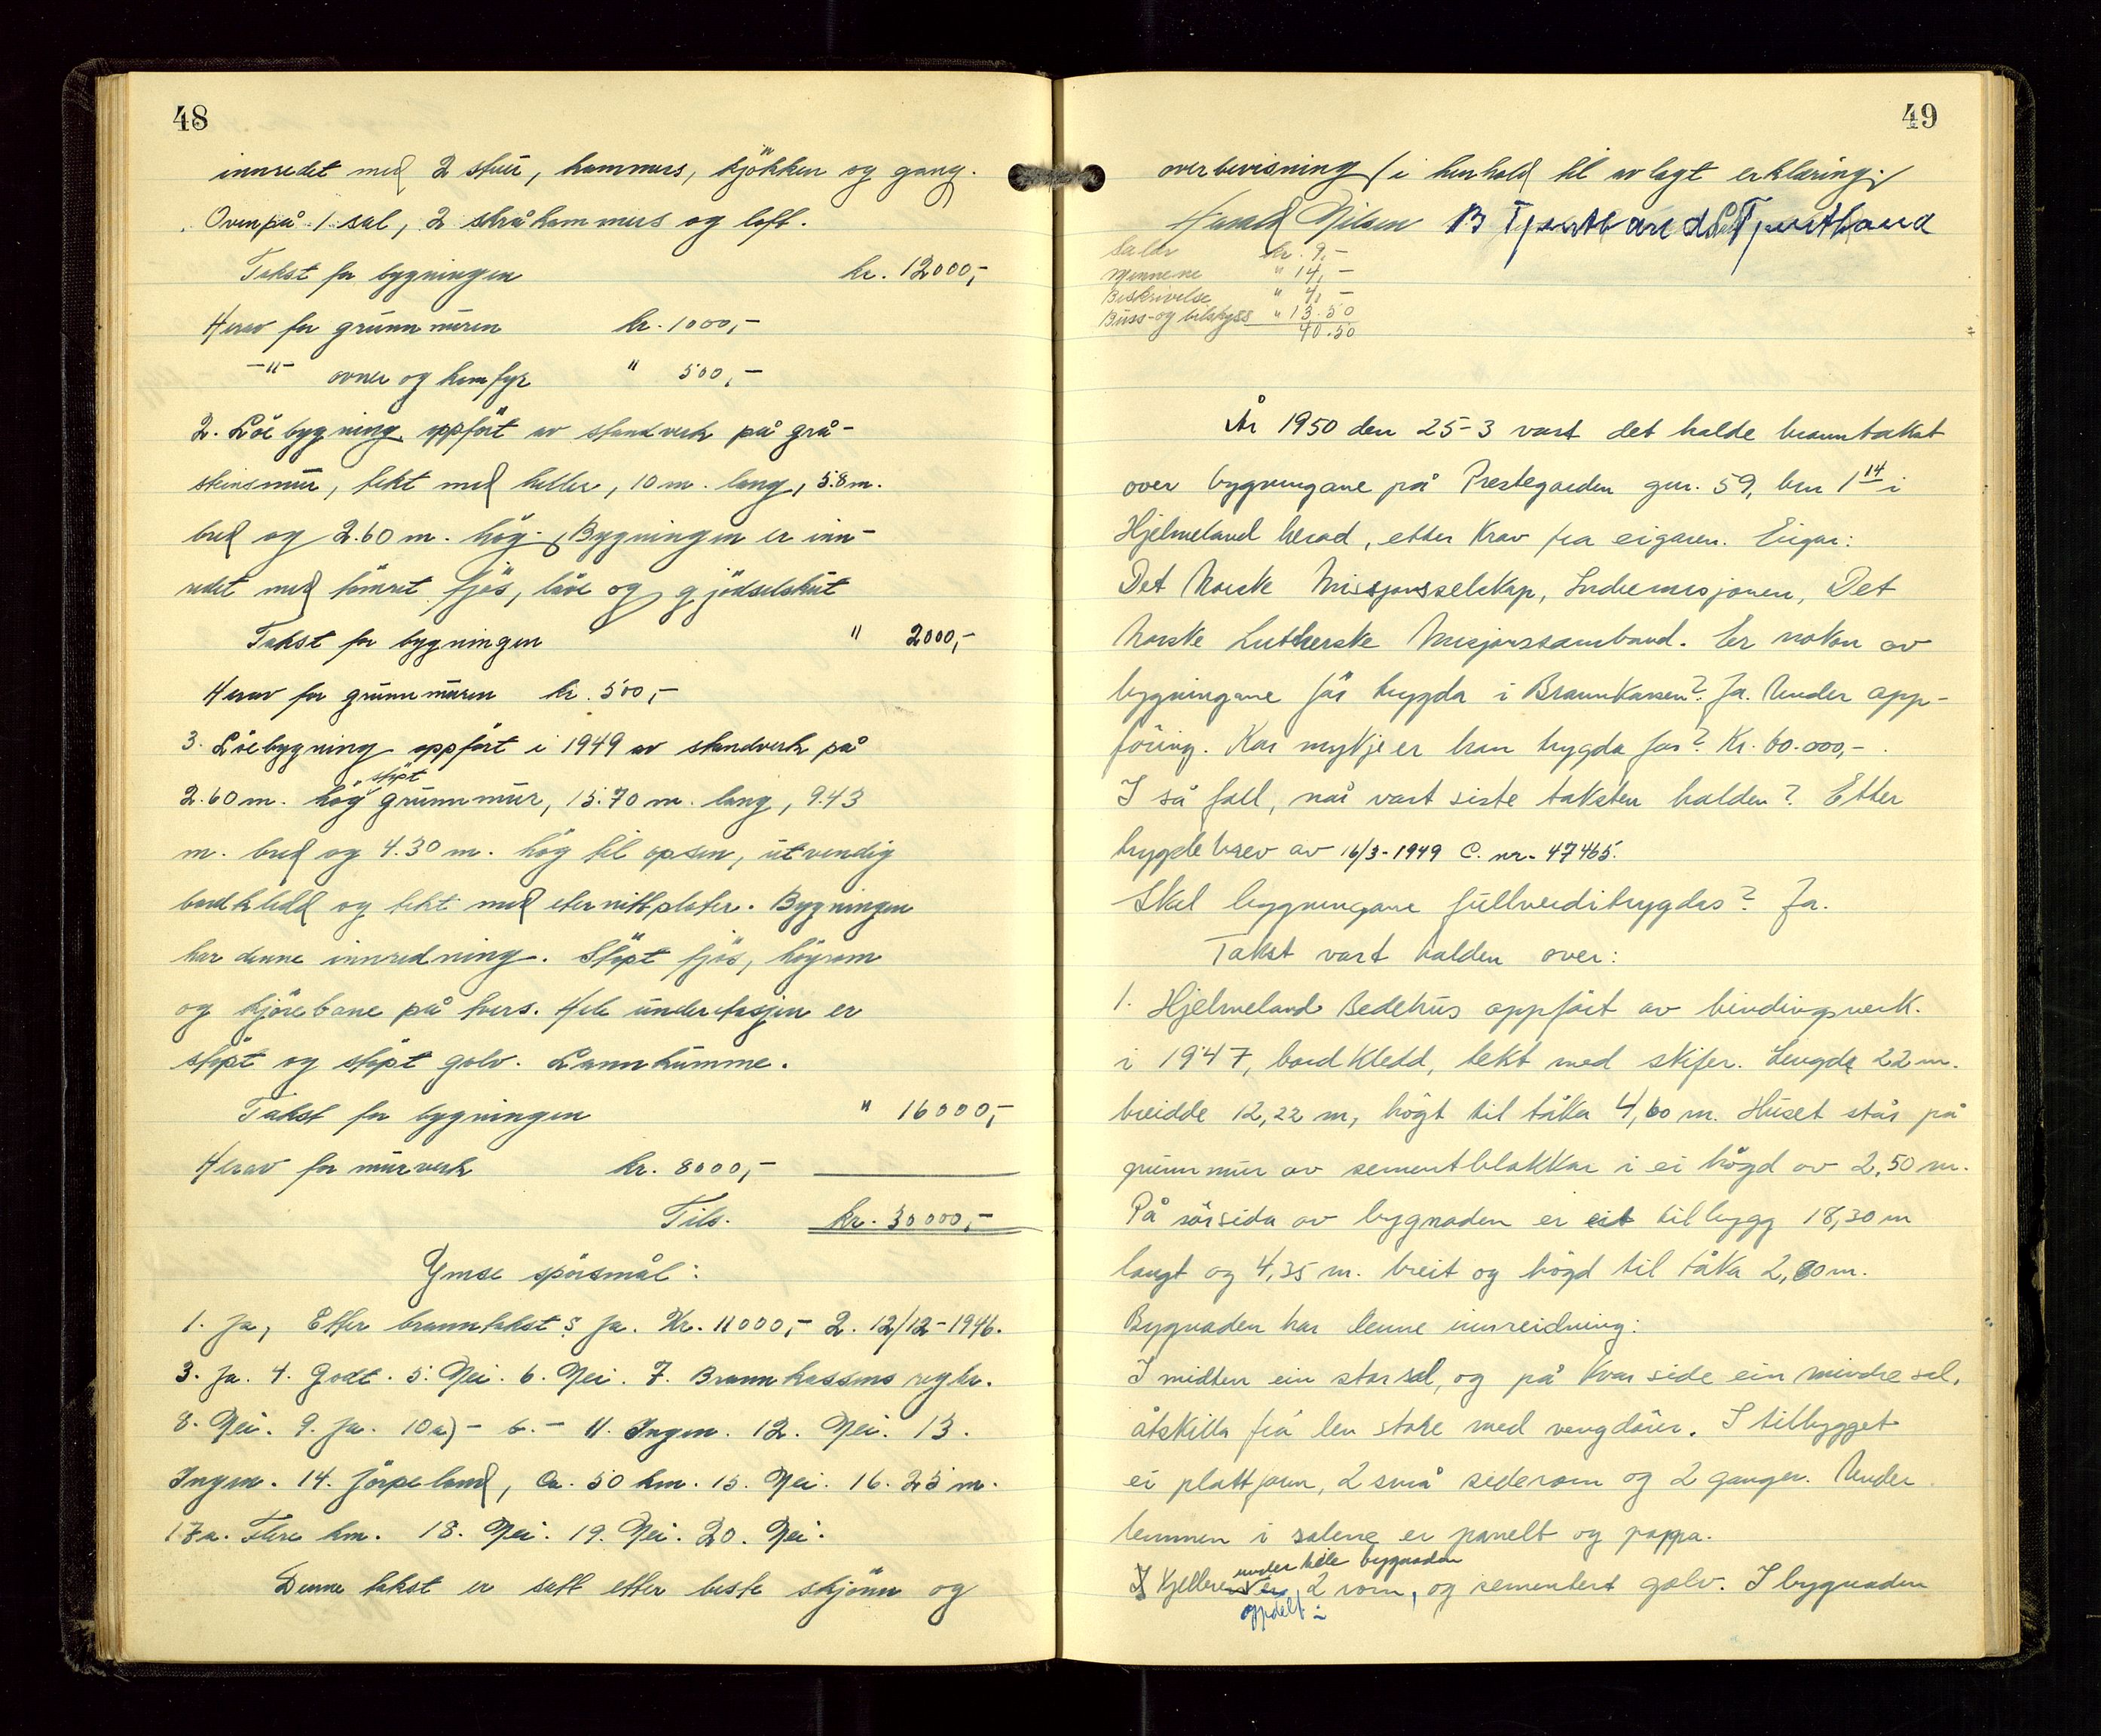 48
innredet med 2 stuer, kammers, kjökken og gang.
Ovenpå 1 sal, 2 skråkammers og loft.
Takst for bygningen kr. 12000,-
Herav for grunnmuren kr. 1000,-
-"- ovner og komfyr " 500,-
2. Löebygning oppfört av standverk på grå-
steinsmur, tekt med heller, 10 m. lang, 5.8 m.
bred og 2.60 m. hög. Bygningen er inn-
redet med tömret fjös, löe og gjödselskut
Takst for bygningen " 2000,-
Herav for grunnmuren kr. 500,-
3. Löebygning oppfört i 1949 av standverk på
2.60 m. hög stöpt grunnmur, 15.70 m. lang, 9.43
m. bred og 4.30 m. hög til opsen, utvendig
bordkledd og tekt med eternittplater. Bygningen
har denne innredning. Stöpt fjös, höyrom
og kjörebane på tvers. Hele underetasjen er
stöpt og stöpt golv. Lannkumme.
Takst for bygningen " 16000,-
Herav for murverk kr. 8000,-
Tils. kr. 30000,-
Ymse spörsmål:
1. Ja, Etter branntakst? Ja. Kr. 11000,- 2. 12/12-1946.
3. Ja. 4. Godt. 5. Nei. 6. Nei. 7. Brannkassens regler.
8. Nei. 9. Ja. 10a) - b. - 11. Ingen. 12. Nei. 13.
Ingen. 14. Jörpeland, ca. 50 km. 15. Nei. 16. 25 m.
17a. Flere km. 18. Nei. 19. Nei. 20. Nei.
Denne takst er satt etter beste skjönn og
49
overbevisning i henhold til avlagt erklæring.
Harald Nilsen B Tjentland
kr. 9,-
Mennene " 14,-
Beskrivelse " 4,-
Buss- og bilskyss " 13.50
40.50
År 1950 den 25-3 vart det halde branntakst
over bygningane på Prestegarden gnr. 59, bnr 1 14 i
Hjelmeland herad, etter krav fra eigaren. Eigar:
Det Norske Misjonsselskap, Indremisjonen, Det
Norske Lutherske Misjonssamband. Er nokon av
bygningane för trygda i Brannkassen? Ja. Under opp-
föring. Kor mykje er han trygda for? Kr. 60.000,-.
I så fall, når vart siste taksten halden? Etter
trygdebrev av 16/3-1949 C. nr. 47465.
Skal bygningane fullverditrygdas? Ja.
Takst vart halden over:
1. Hjelmeland Bedehus oppfört av bindingsverk.
i 1947, bordkledd, tekt med skifer. Lengde 22 m.
breidde 12,22 m, högt til tåka 4,60 m. Huset står på
grunnmur av sementblokkar i ei högd av 2,50 m.
På sörsida av bygnaden er eit tilbygg 18,30 m
langt og 4,35 m. breit og högd til tåka 2,80 m.
Bygnaden har denne innreidning:
I midten ein stor sal, og på kvar side ein mindre sal,
åtskilla frå den store med vengdörer. I tilbygget
ei plattform, 2 små siderom og 2 ganger. Under
lemmen i salene er panelt og pappa.
under hele bygnaden
I Kjelleren er 2 rom, og sementert golv. I bygnaden
oppdelt i